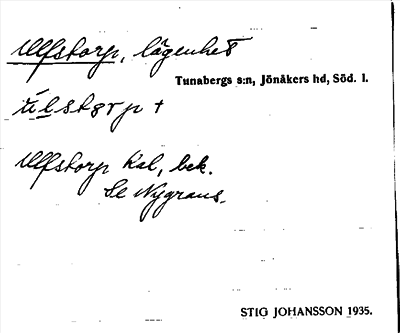 Ulfstorp, lägenhet
Tunabergs s:n, Jönåkers hd, Söd. l.
Ulfstorp Kal, bek.
Se Nygrans.
STIG JOHANSSON 1935.